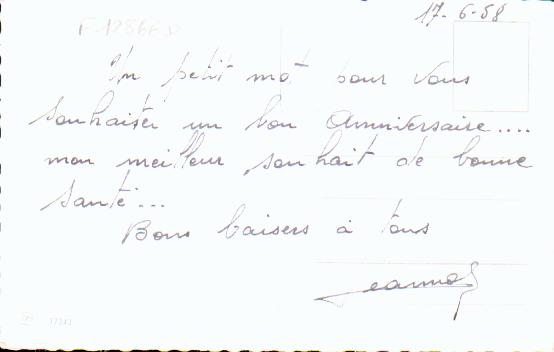 17-6-58
Un petit mot pour vous
souhaiter un bon anniversaire....
mon meilleur souhait de bonne
santé...
Bons baisers à tous
Jeannot